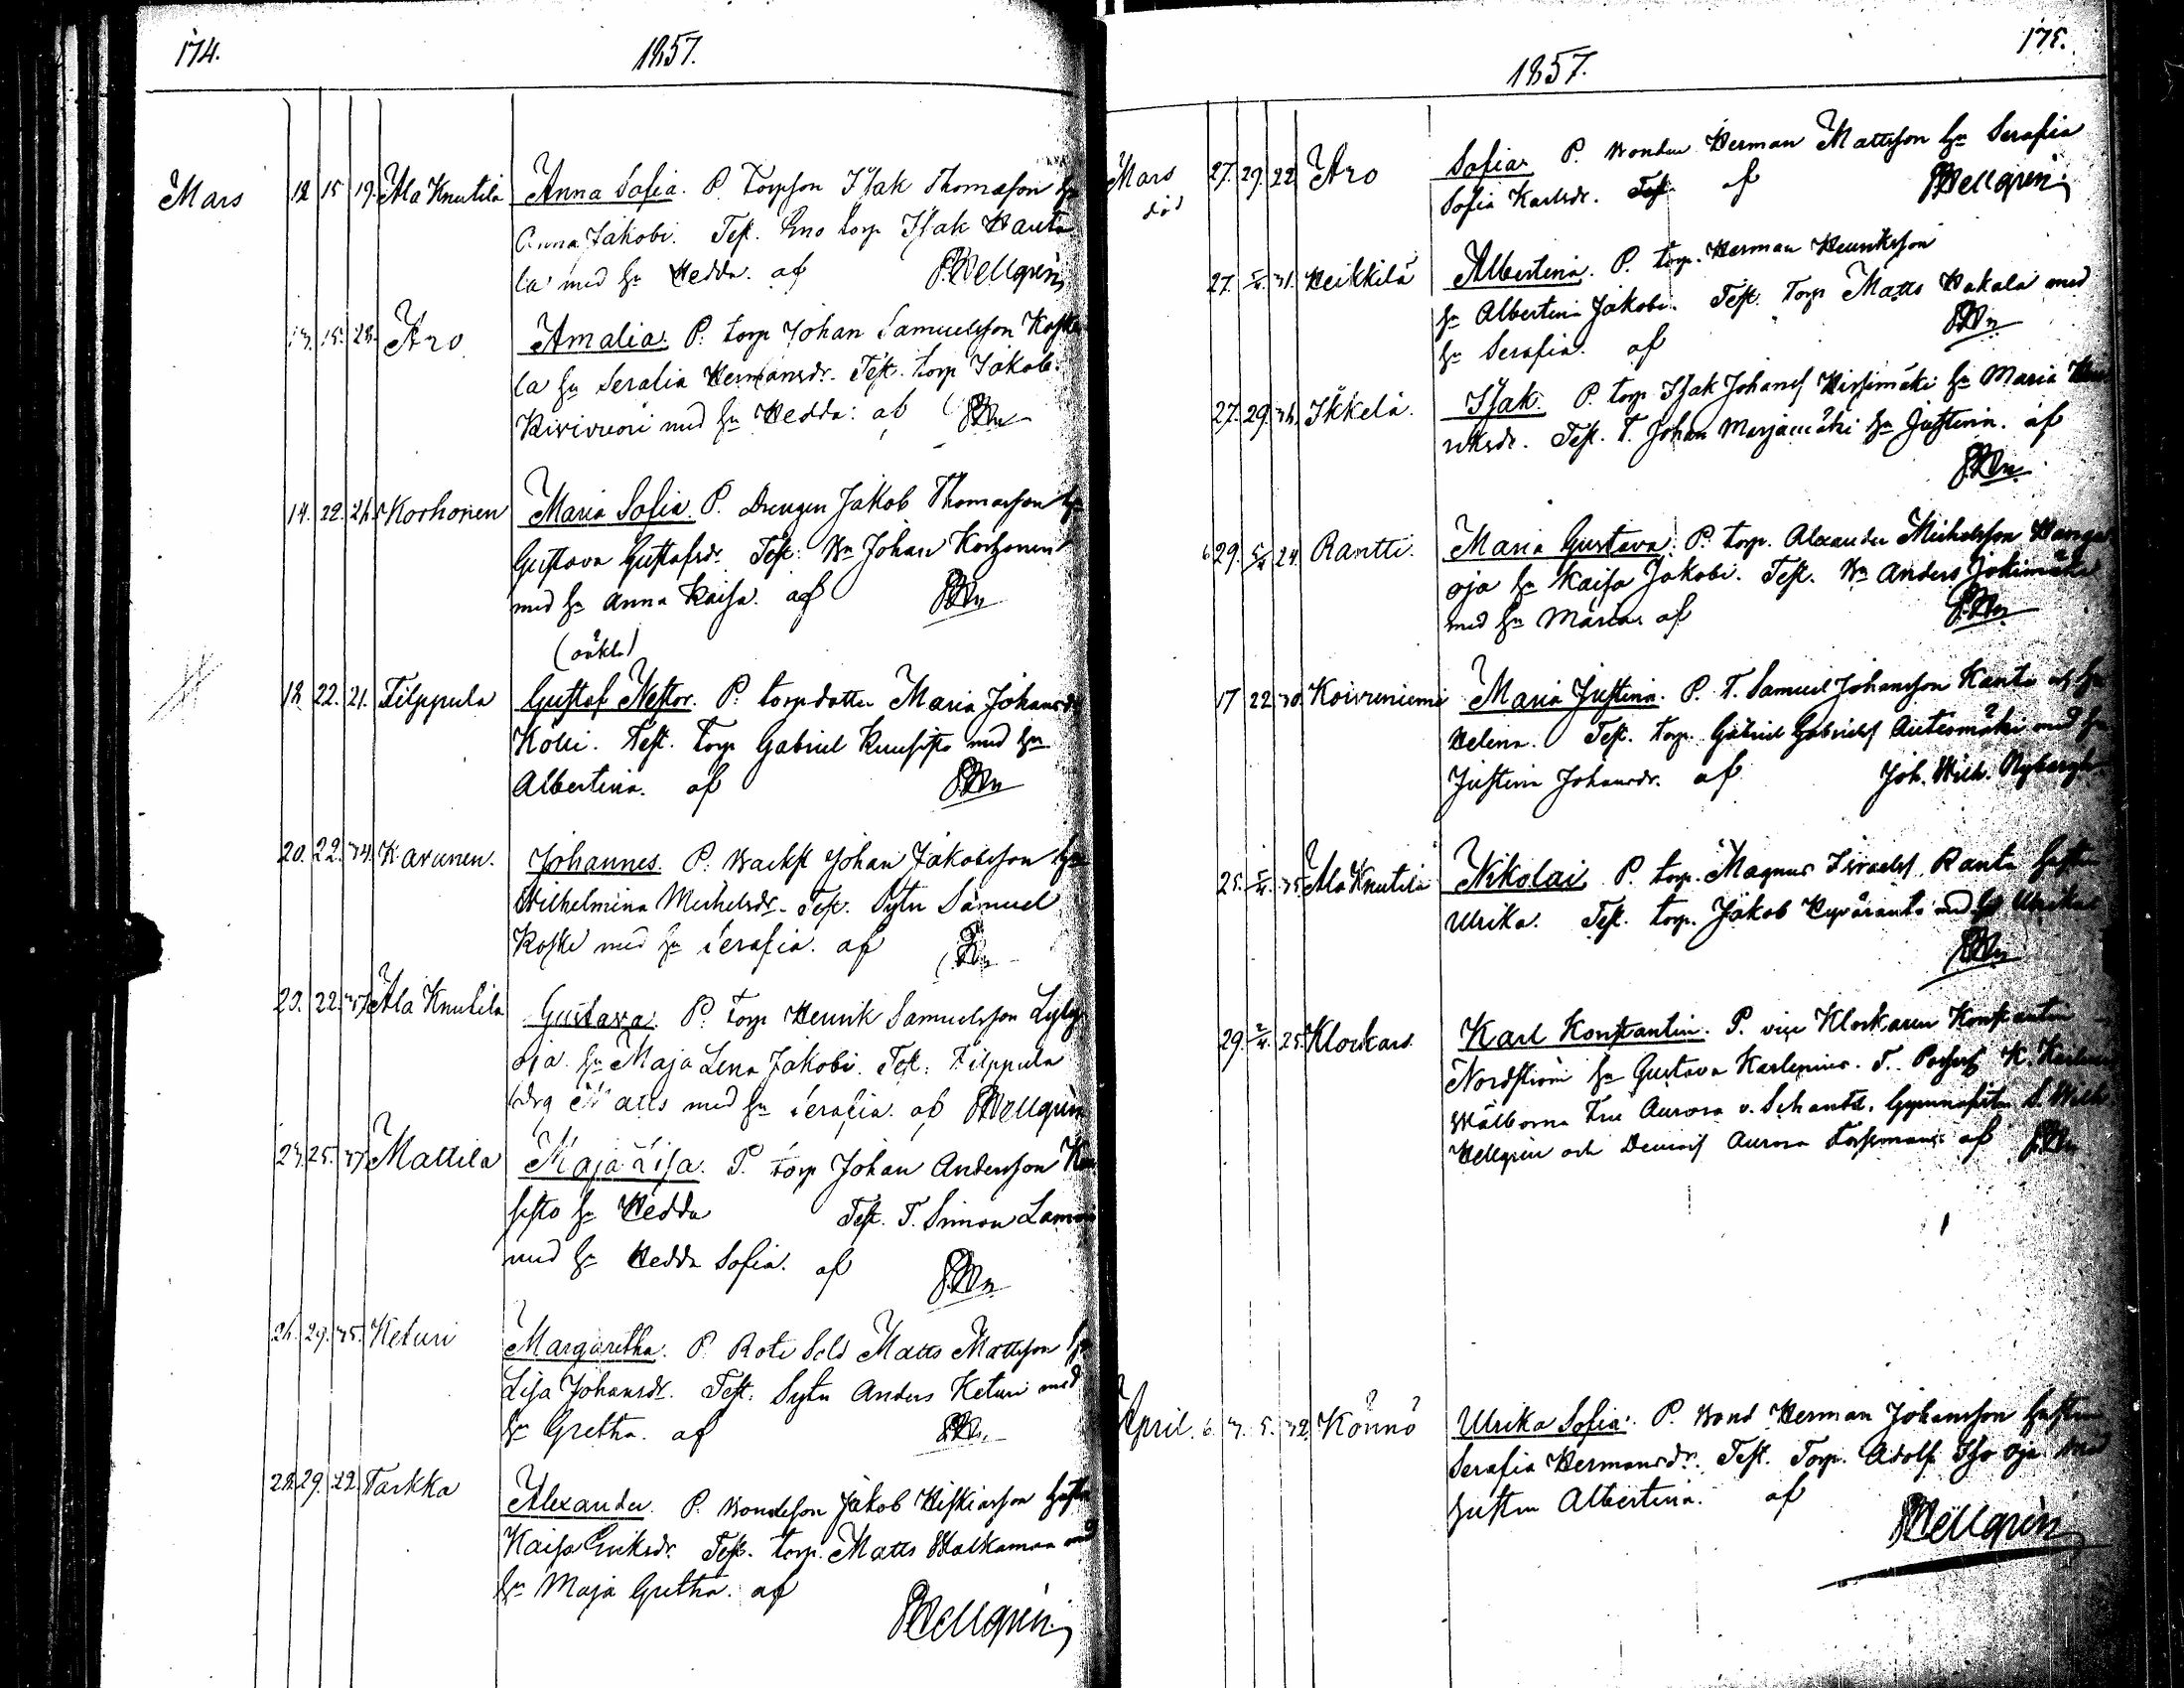 174.
1857.
Mars 12 15 19. Ala Knutila Anna Sofia. P. Torpson Isak Thomasson hu
Anna Jakobi. Test. Eno torp Isak Hauta
la med hu Hedda. af Hellgren
13. 15. 23. Aro Amalia. P. torp Johan Samuelsson Koske
la hu Serafia Hermansdr. Test. torp Jakob
Kivivuori med hu Hedda: af
14. 22. 24. Korhonen Maria Sofia. P. Drengen Jakob Thomasson hu
Gustava Gustafsdr. Test: Bn Johan Korhonen
med hu Anna Kaisa. af
(oäkta)
18 22. 21. Filppula Gustaf Nestor. P. torpdotter Maria Johansdr
Kolli. Test. torp Gabriel Kuusisto med hu
Albertina. af
20. 22. 34. Karunen. Johannes. P. Backst Johan Jakobsson hu
Wilhelmina Michelsdr. Test. Sytn Samuel
Koski med hu Serafia. af
20. 22. 37. Ala Knutila Gustava. P. torp Henrik Samuelsson Lyly
oja hu Maja Lena Jakobi. Test: Filppula
drg Matts med hu Serafia. af Hellgren
23. 25. 37. Mattila Maja Lisa. P. torp Johan Andersson
sisto hu Hedda Test. T. Simon
med hu Hedda Sofia. af
24. 29. 35. Keturi Margaretha. P. Rote Sold Matts Mattsson hu
Lisa Johansdr. Test. Sytn Anders Keturi med
hu Gretha. af
28. 29. 22. Tarkka Alexander. P. Bondeson Jakob Hiskiasson hustru
Kaisa Eriksdr. Test. torp. Matts Walkamaa med
hu Maja Gretha. af
Hellgren
175.
1857.
Mars 27. 29. 22 Aro Sofia. P. Bonden Herman Mattsson hu Serafia
död Sofia Karlsdr. Test. af Hellgren
27. 5/4. 31. Heikkilä Albertina. P. torp. Herman Henriksson
hu Albertina Jakobi. Test. torp Matts Hakala med
hu Serafia. af
27. 29. 34. Ikkelä. Isak. P. torp Isak Johanss Hirsimäki hu Maria Hen
riksdr. Test. T. Johan Marjamäki hu Justina. af
29. 5/4 24. Rantti. Maria Gustava. P. torp. Alexander Michelsson
oja hu Kaisa Jakobi. Test. Bn Anders Jokimäki
med hu Maria af
17 22 30. Koivuniemi Maria Justina. P. T. Samuel Johansson Ranta och hu
Helena. Test. torp. Gabriel Gabrielss Autiomäki med hu
Justina Johansdr. af Joh. Wilh.
25. 5/4. 35. Ala Knutila Nikolai. P. torp. Magnus Israelss. Ranta hustru
Ulrika. Test. torp. Jakob med hu Ulrika
29. 2/4. 25. Klockars Karl Konstantin. P. vice Klockaren Konstantin
Nordström hu Gustava Karlenius. T.
Wälborna Fru Aurora v. Schantz. Gymnasisten S. Wilh
Hellgren och Demois Aurora Forsman af
April. 6. 3. 5. 32. Könnö Ulrika Sofia. P. Bond Herman Johansson hustru
Serafia Hermansdr. Test. Torp. Adolf Iso oja med
hustru Albertina. af
Hellgren